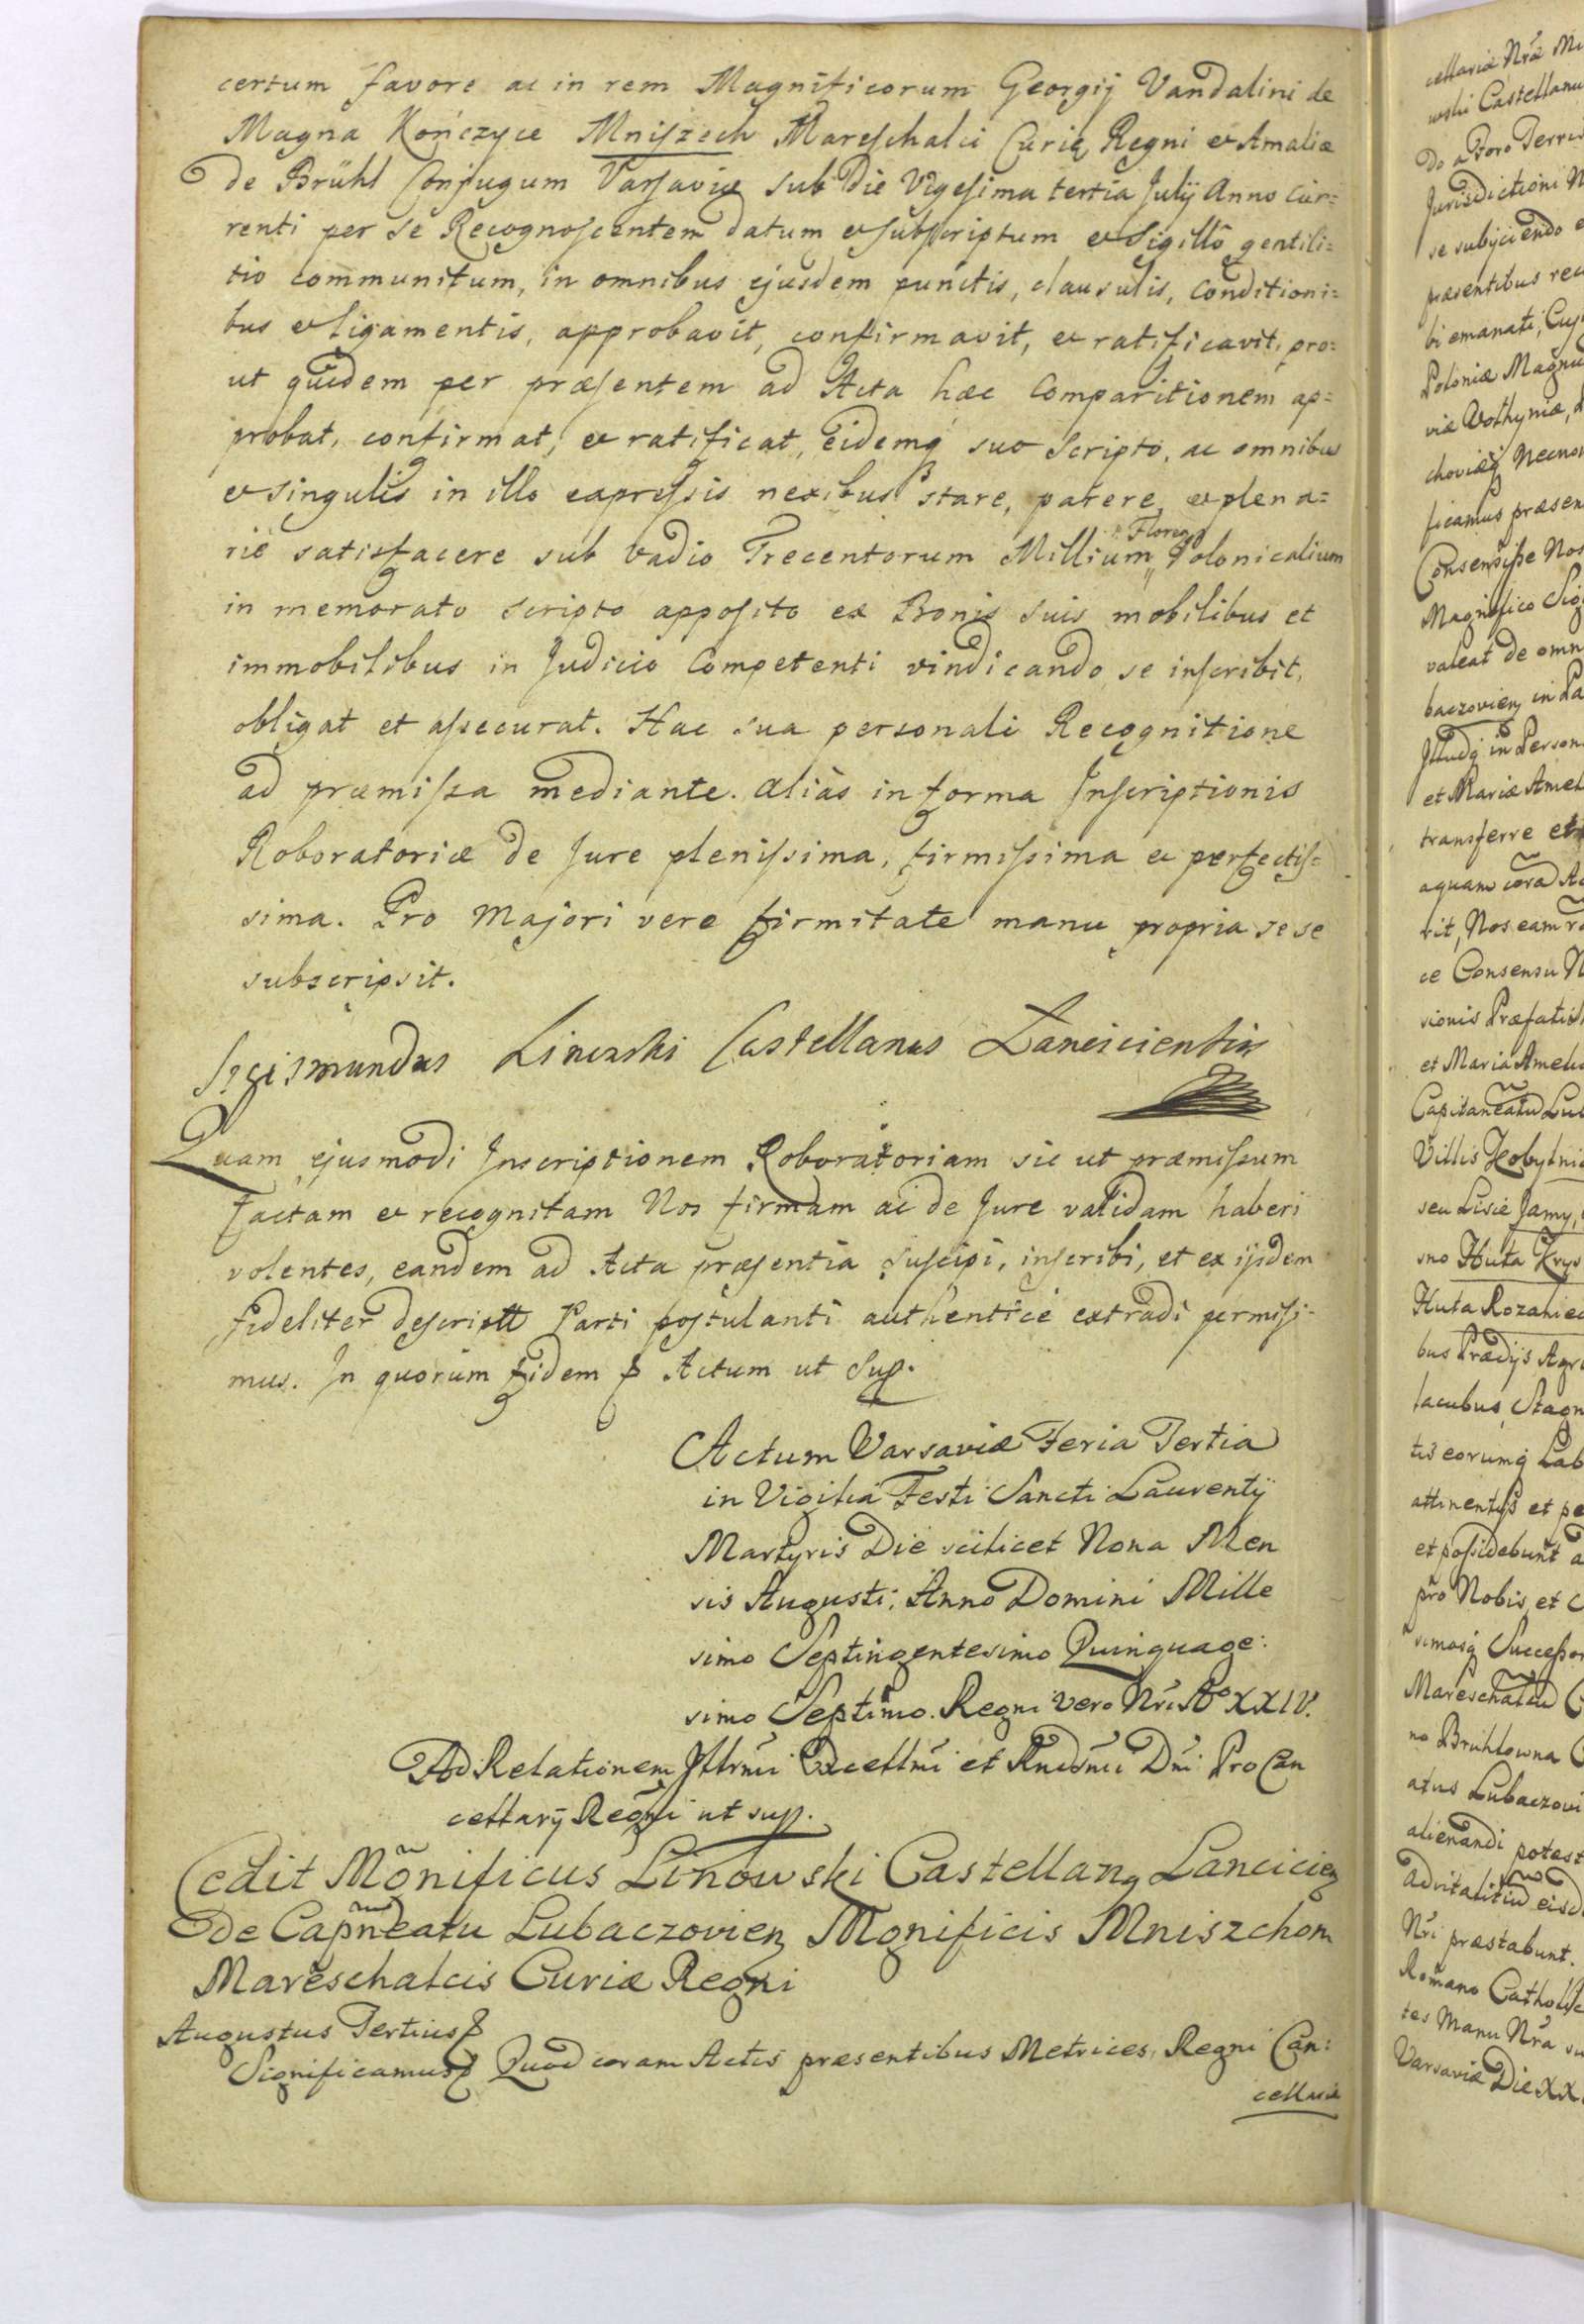 certum favore ac in rem Magnificorum Georgij Vandalini de
Magna Kończyce Mniszech Mareschalci Curiæ Regni et Amaliæ
de Brühl Conjugum Varsaviæ sub Die Vigesima tertia Julÿ Anno Cur=
renti per se Recognoscentem datum et subscriptum et Sigillô gentili=
tio communitum, in omnibus ejusdem punctis, clausulis, Conditioni=
bus et ligamentis, approbavit, confirmavit, et ratificavit, pro=
ut quidem per præsentem ad Acta hæc Comparitionem ap=
probat, confirmat, et ratificat, eidemq suo Scripto, ac omnibus
et singulis in illo expressis nexibus stare, parere, et plena=
rie satisfacere sub vadio Trecentorum Millium Floren Polonicalium
in memorato scripto apposito ex Bonis suis mobilibus et
immobilibus in Judicio Competenti vindicando se inscribit,
obligat et assecurat. Hac sua personali Recognitione
ad præmissa mediante. aliàs in forma Inscriptionis
Roboratoriæ de Jure plenissima, firmissima et perfectis=
sima. Pro Majori vero firmitate manu propria sese
subscripsit.
Sigismundus Linowski Castellanus Lanciciensis
Quam ejusmodi Inscriptionem Roboratoriam sic ut præmissum
factam et recognitam Nos firmam ac de Jure validam haberi
volentes, eandem ad Acta præsentia suscipi, inscribi, et ex ijsdem
fideliter descriptt Parti postulanti authentice extradi permisi=
mus. In quorum fidem p Actum ut Sup.
Actum Varsaviæ Feria Tertia
in Vigilia Festi Sancti Laurentÿ
Martyris Die scilicet Nona Men
sis Augusti; Anno Domini Mille
simo Septingentesimo Quinquage:
simo Septimo. Regni vero Nri Ao XXIV.
Ad Relationem Illrmi Excellmi et Rndsmi Dni Pro Can
cellarÿ Regni ut sup.
Cedit Mõnificus Linowski Castellanq Lancicien
de Capñeatu Lubaczovien Mgnificis Mniszchom
Mareschalcis Curiæ Regni
Augustus Tertius p
Significamus p Quod coram Actis præsentibus Metrices Regni Can:
cellariæ
cellariæ Nræ
wski Castellanu
do a Foro Terres
Jurisdictioni N
se subijciendo e
præsentibus rec
bi emanati, Cuj
Poloniæ Magnu
viæ Volhyniæ, 
choviæq Necnon
ficamus præsen
Consensisse Nos
Magnifico Sig
valeat de omn
baczovien in Pa
Illudq in Person
et Mariæ Amel
transferre et
aquam cora Ac
rit, Nos eam
ce Consensu N
sionis Præfatis
et Maria Ameli
Capitaneatu Lub
Villis Kobylni
seu Lisie Jamy,
sno Huta Krys
Huta Rozaniec
bus Prædijs Agri
lacubus, Stagn
tis eorumq Lab
attinentijs et pe
et possidebunt a
pro Nobis, et
simosq Successor
Mareschalcu C
no Brühlowna C
atus Lubaczovi
alienandi potest
advitalitiu eisd
Nri præstabunt.
Romano Catholic
tes Manu Nra su
Varsaviæ Die XX